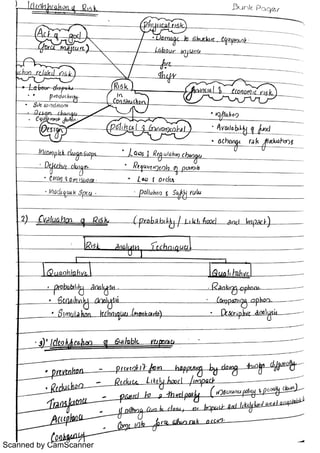 Identification of Risk
Act of god
(force majeure)
physical risk
• Damage to structure, equipment
Labour injuries
fire
theft
• Labour disputes
• productivity
• Site conditions
• Design changes
• Equipment failure
Risk
in
Construction
financial & economic risk
• inflation
• Availability of fund
• exchange rate fluctuations
Design
Political & Environmental
Incomplete design scope
• Defective design
• Errors & omissions
• Inadequate Specs.
• Laws & Regulation changes
• Requirements of permits
• Law & order
• pollution & Safety rules
2) Evaluation of Risk (probability / Likelihood and Impact)
Risk Analysis Techniques
Quantitative
Qualitative
• probability analysis
• Sensitivity analysis
• Simulation techniques (montecarlo)
Ranking options
• Comparing option
• Descriptive analysis
3) Identification of Suitable response
• prevention - prevent it from happening by doing things differently
• Reduction - Reduce Likelyhood /impact
• Transference - passed to a third party (insurance policy & penalty clause)
• Acceptance -
Contingency - Come into force when risk occurs
Scanned by CamScanner